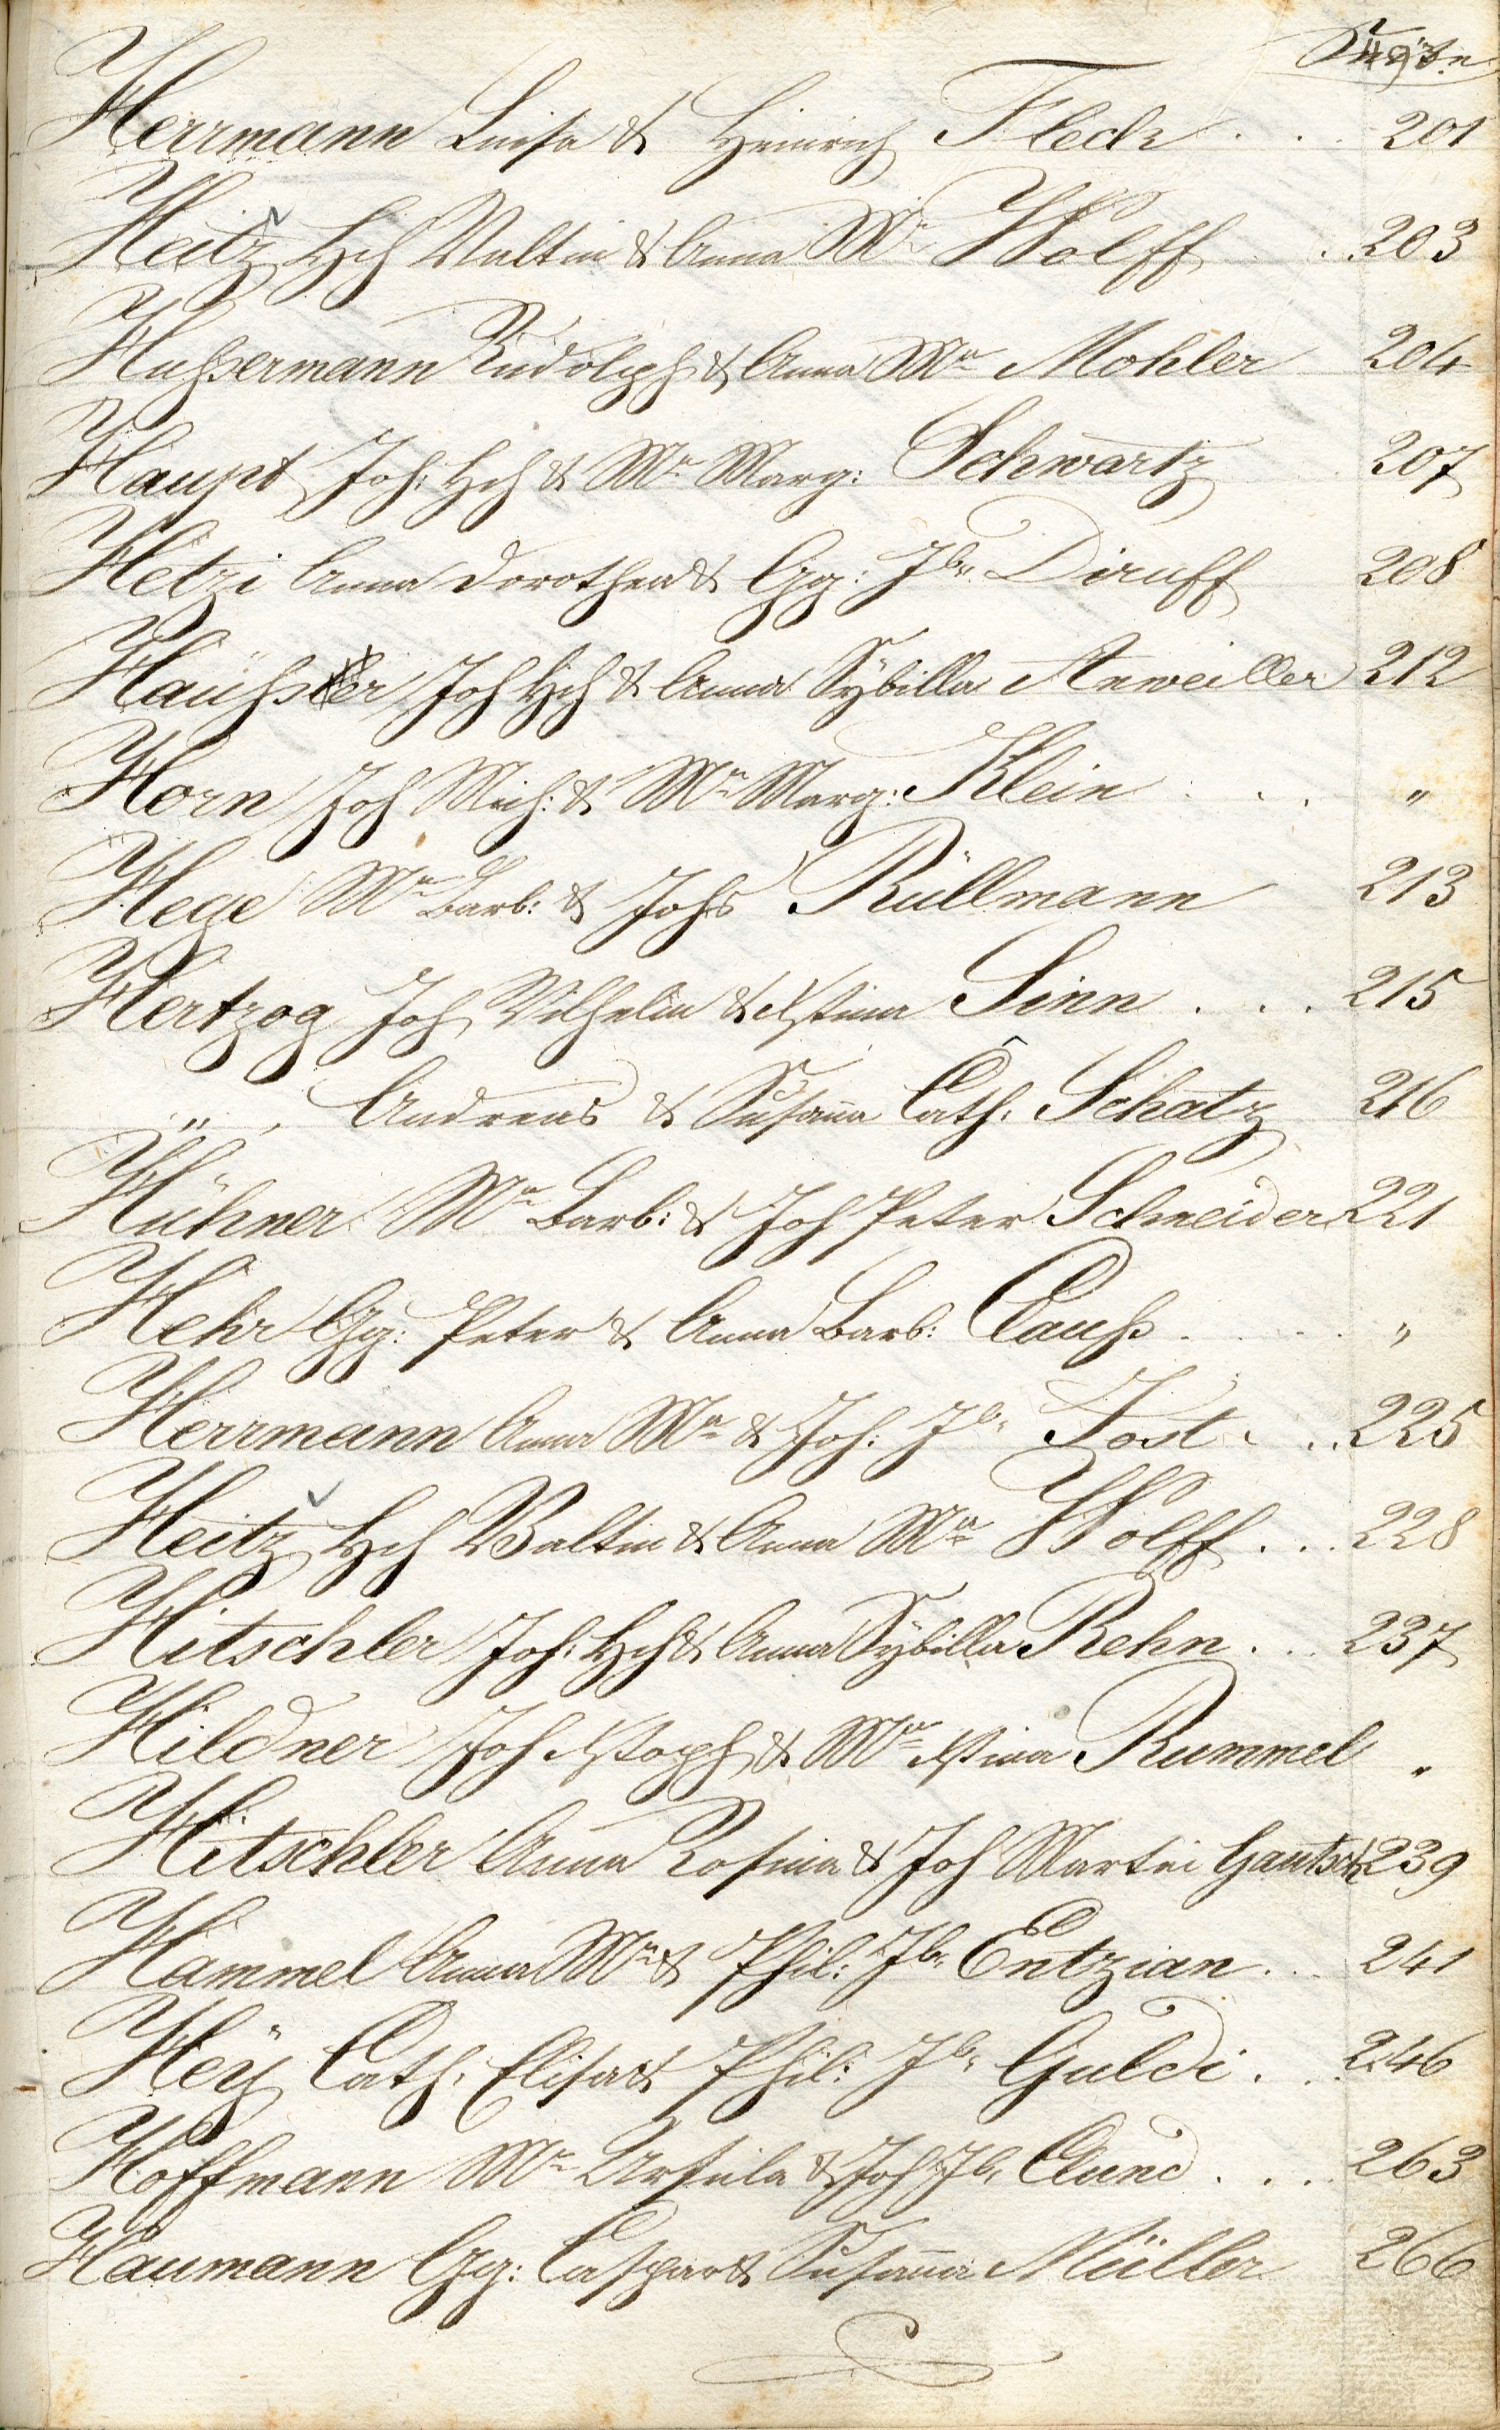 Seite
Herrmann Luisa & Heinrich Fleck . . 201
Heitz Hch Valtin & Anna Ma Wolff . . 203
Hußermann Rudolph & Anna Ma Mohler 204
Haupt Joh: Hch & Ma Marg: Schwartz 207
Hetzi Anna Dorothea & Gg: Jb. Diruff 208
Häußer Joh Hch & Anna Sÿbilla Anweiller 212
Horn Joh Mich: & Ma Marg: Klein . . . "
Hege Ma Barb: & Johs Rüllmann 213
Hertzog Joh Wilhelm & Xstina Sinn . . . 215
" Andreas & Susaña Cath. Schatz 216
Hühner Ma Barb: & Joh Peter Schneider 221
Hehr Gg: Peter & Anna Barb: Clauß . . . . "
Herrmann Anna Ma & Joh. Jb. Jost . . . 225
Heitz Hch Valtin & Anna Ma Wolff . . . 228
Hitschler Joh: Hch & Anna Sÿbilla Rehn . . . 237
Hildner Joh Xstoph & Ma Xstina Rummel "
Hitschler Anna Rosina & Joh Martin Gautsch 239
Hammel Anna Ma & Phil: Jb. Entzian . . . 241
Heÿ Cath. Elisa & Phil: Jb. Guldi . . . 246
Hoffmann Ma Ursula & Joh Jb. Clund . . . 263
Haumann Gg: Caspar & Susaña Müller 266